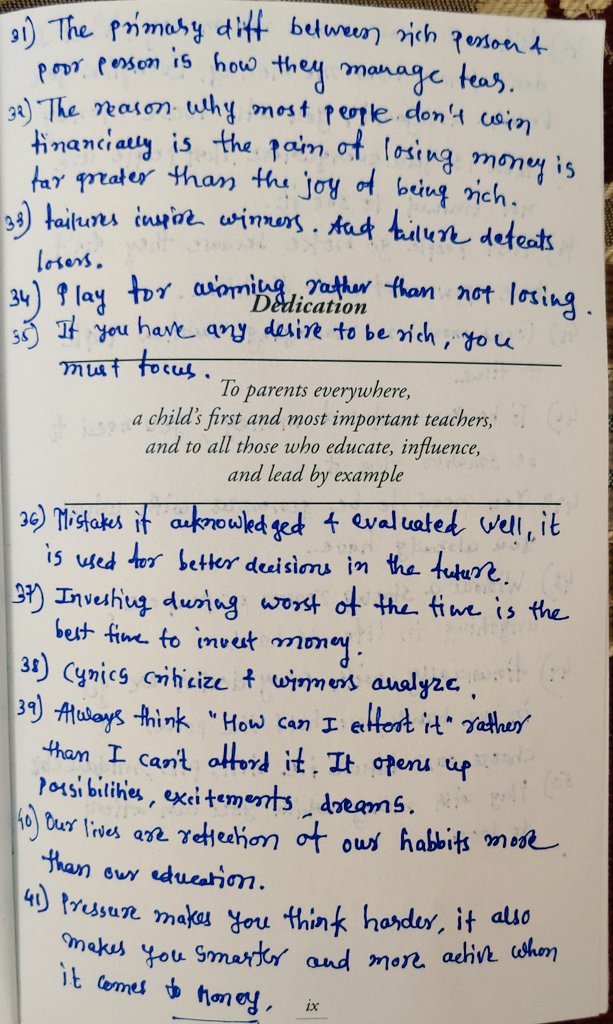 31) The primary diff between rich person &
poor person is how they manage fear.
32) The reason why most people don't win
financially is the pain of losing money is
far greater than the joy of being rich.
33) failures inspire winners. And failure defeats
losers.
34) Play for winning rather than not losing.
Dedication
35) If you have any desire to be rich, you
must focus.
To parents everywhere,
a child's first and most important teachers,
and to all those who educate, influence,
and lead by example
36) Mistakes if acknowledged & evaluated well, it
is used for better decisions in the future.
37) Investing during worst of the time is the
best time to invest money.
38) Cynics criticize & winners analyze.
39) Always think "How can I effort it" rather
than I can't afford it. It opens up
possibilities, excitements, dreams.
40) Our lives are reflection of our habbits more
than our education.
41) Pressure makes you think harder, it also
makes you smarter and more active when
it comes to money.
ix